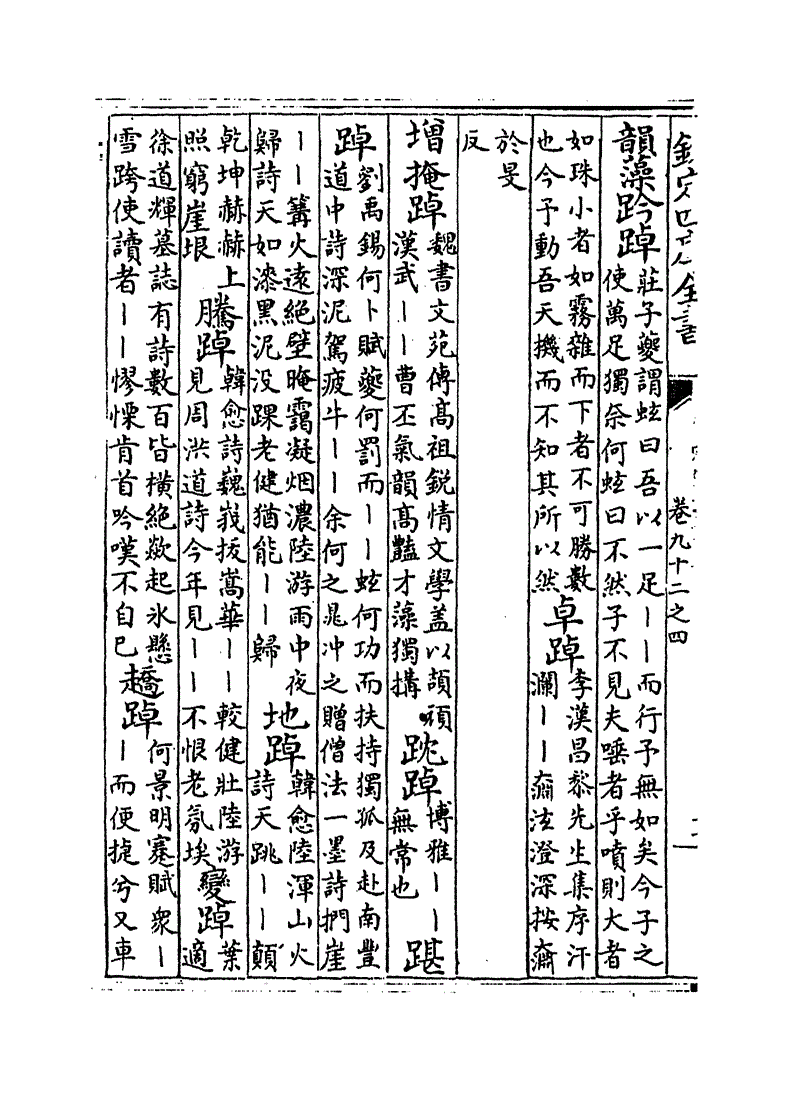 欽定四庫全書
卷九十二之四
韻藻趻踔
莊子夔謂蚿曰吾以一足丨丨而行予無如矣今子之
使萬足獨奈何蚿曰不然子不見夫唾者乎噴則大者
如珠小者如霧雜而下者不可勝數
也今予動吾天機而不知其所以然
卓踔
李漢昌黎先生集序汗
瀾丨丨奫泫澄深按奫
於旻
反
增掩踔
魏書文苑傳髙祖鋭情文學盖以頡頏
漢武丨丨曹丕氣韻髙豔才藻獨搆
踔
博雅丨丨
無常也
踸
踔
劉禹錫何卜賦夔何罰而丨丨蚿何功而扶持獨孤及赴南豐
道中詩深泥駕疲牛丨丨余何之晁冲之贈僧法一墨詩捫崖
丨丨篝火逺絶壁晻靄凝烟濃陸游雨中夜
歸詩天如漆黑泥没踝老健猶能丨丨歸
地踔
韓愈陸渾山火
詩天跳丨丨顛
乾坤赫赫上
照窮崖垠
騰踔
韓愈詩巍峩拔嵩華丨丨較健壯陸游
見周洪道詩今年見丨丨不恨老氛埃
變踔
葉
適
徐道輝墓誌有詩數百皆橫絶欻起氷懸
雪跨使讀者丨丨憀慄肯首吟嘆不自已
趫踔
何景明蹇賦衆丨
丨而便捷兮又車